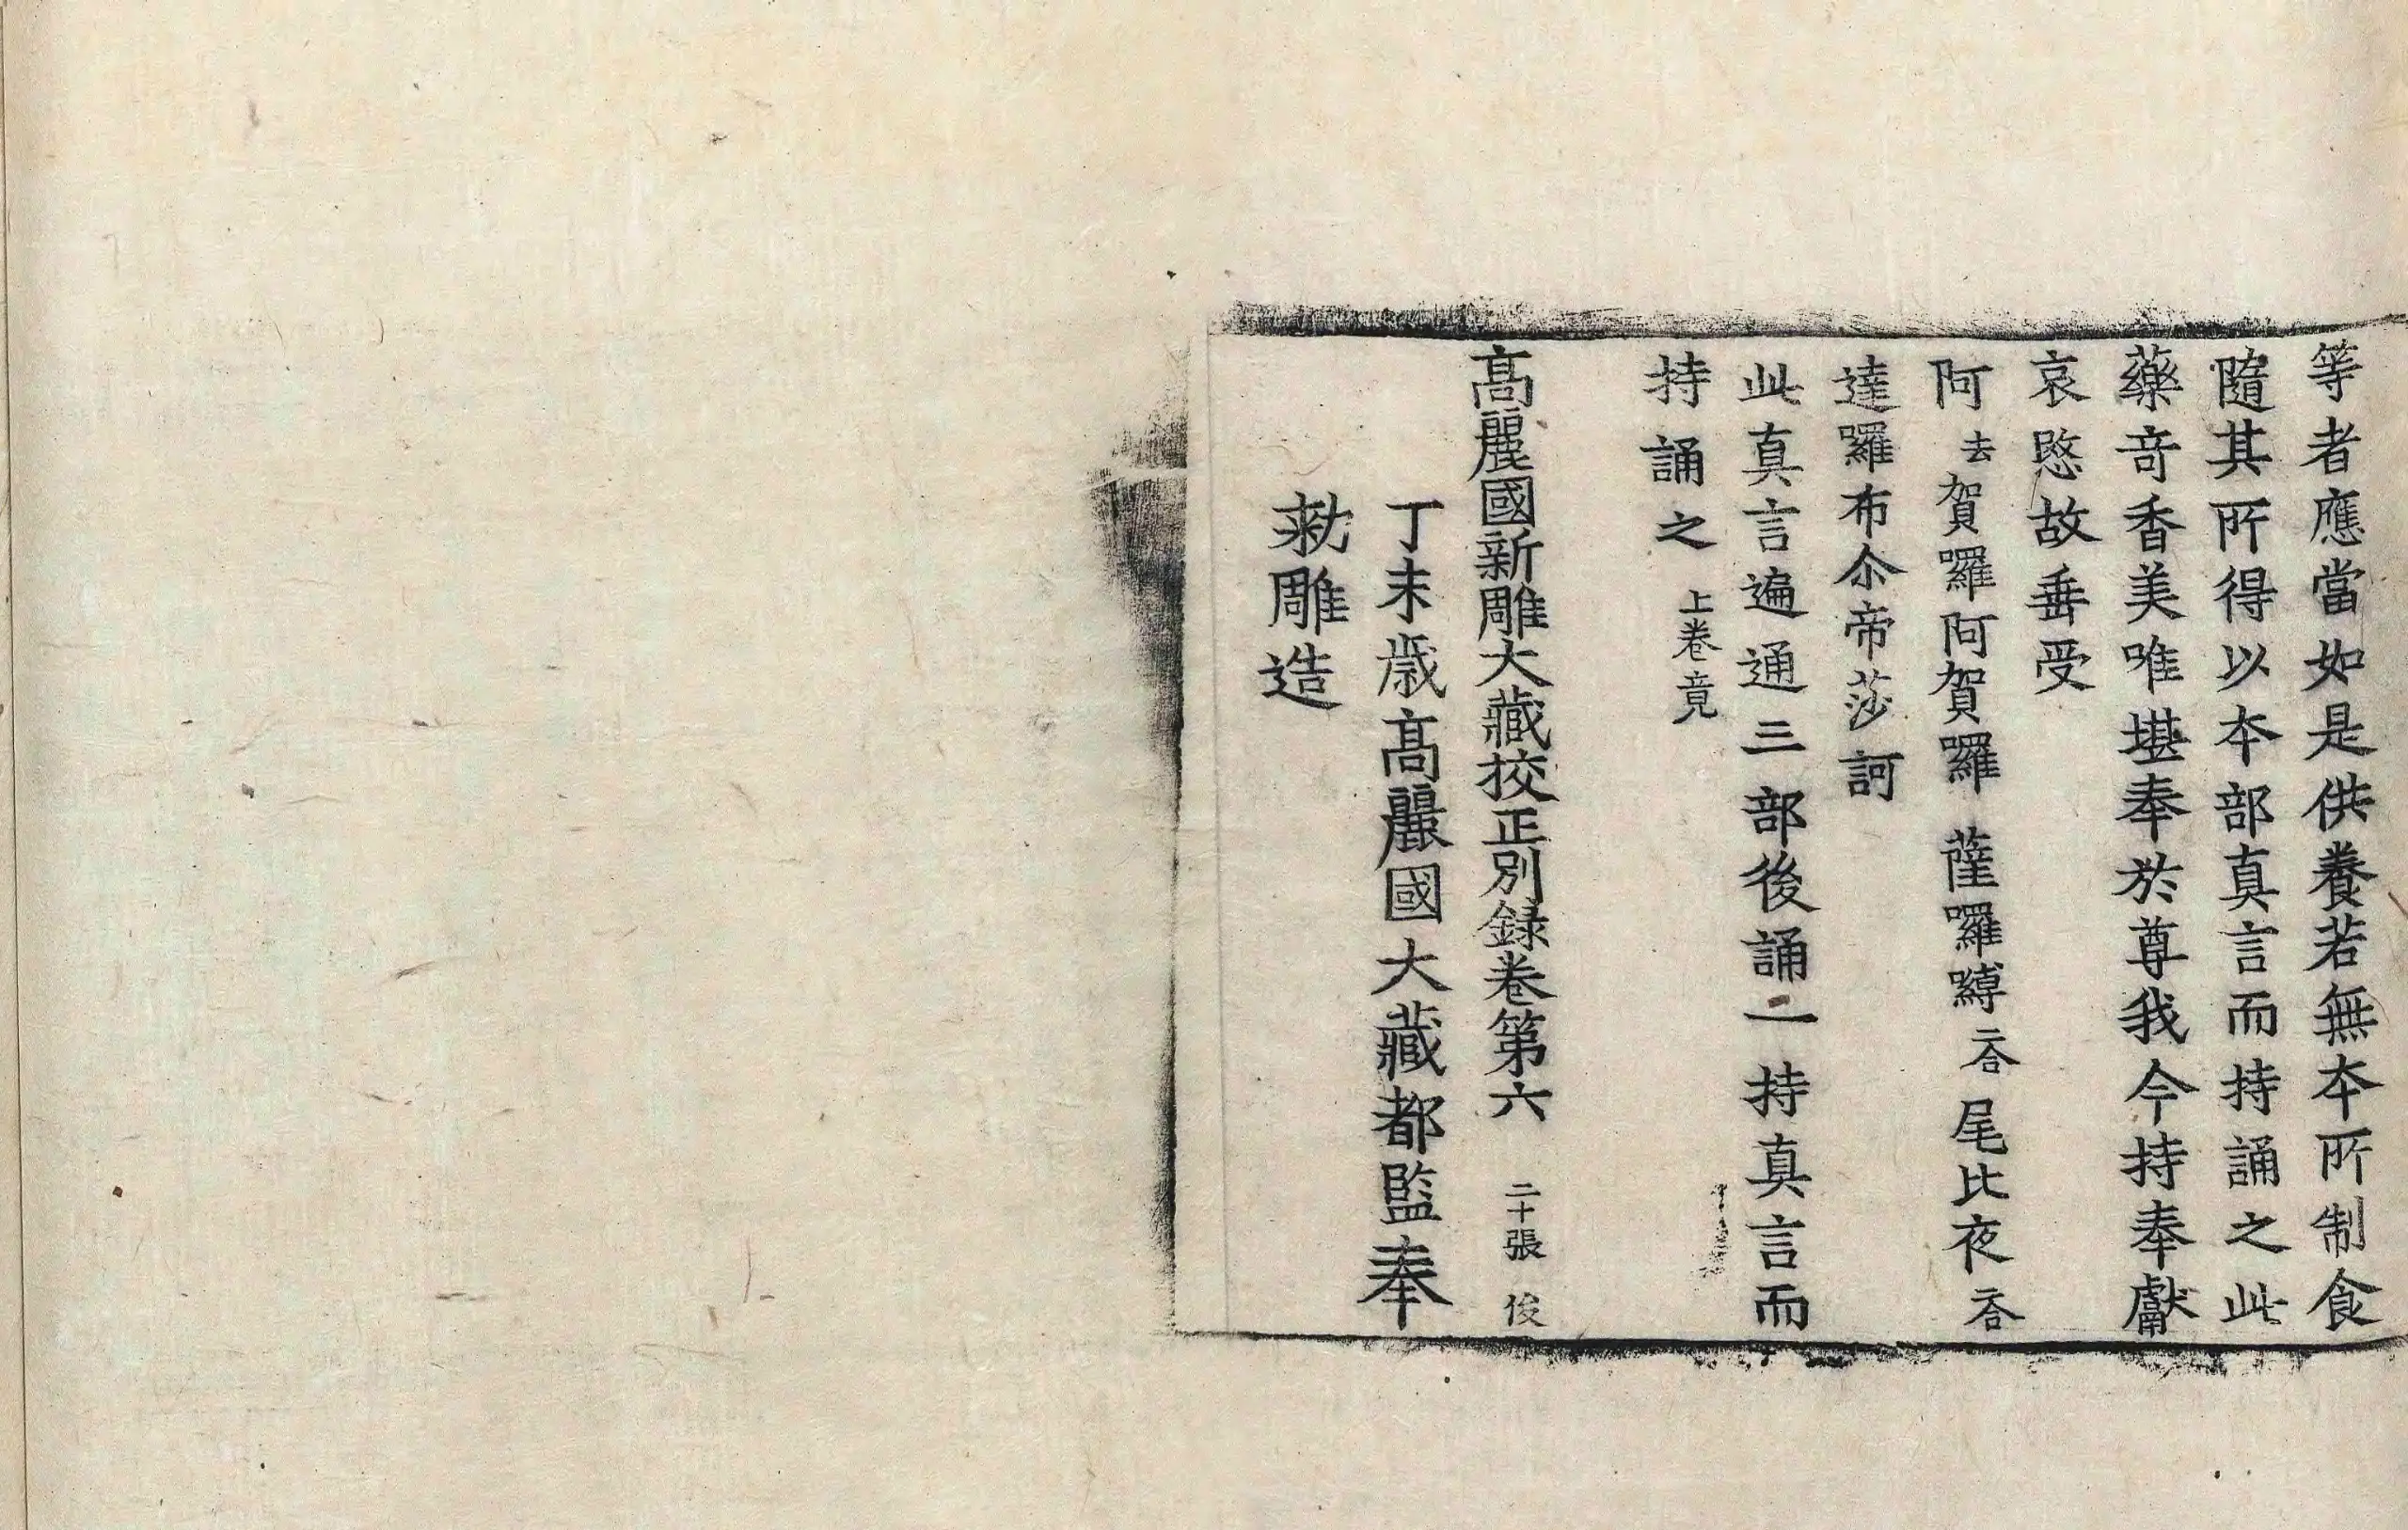 等者應當如是供養若無本所制食
隨其所得以本部真言而持誦之此
藥奇香美唯堪奉於尊我今持奉獻
哀愍故垂受
阿去賀囉阿賀囉薩囉嚩二合尾比夜二合
達囉布尒帝莎訶
此真言遍通三部後誦一持真言而
持誦之上卷竟
高麗國新雕大藏挍正別錄卷第六 二十張 俊
丁未歲高麗國大藏都監奉
勑雕造